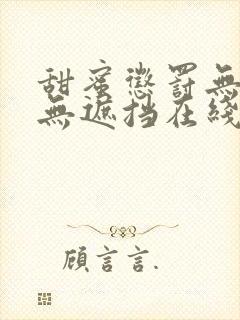 甜蜜懲罰無
無遮挡在綫
顧言言.